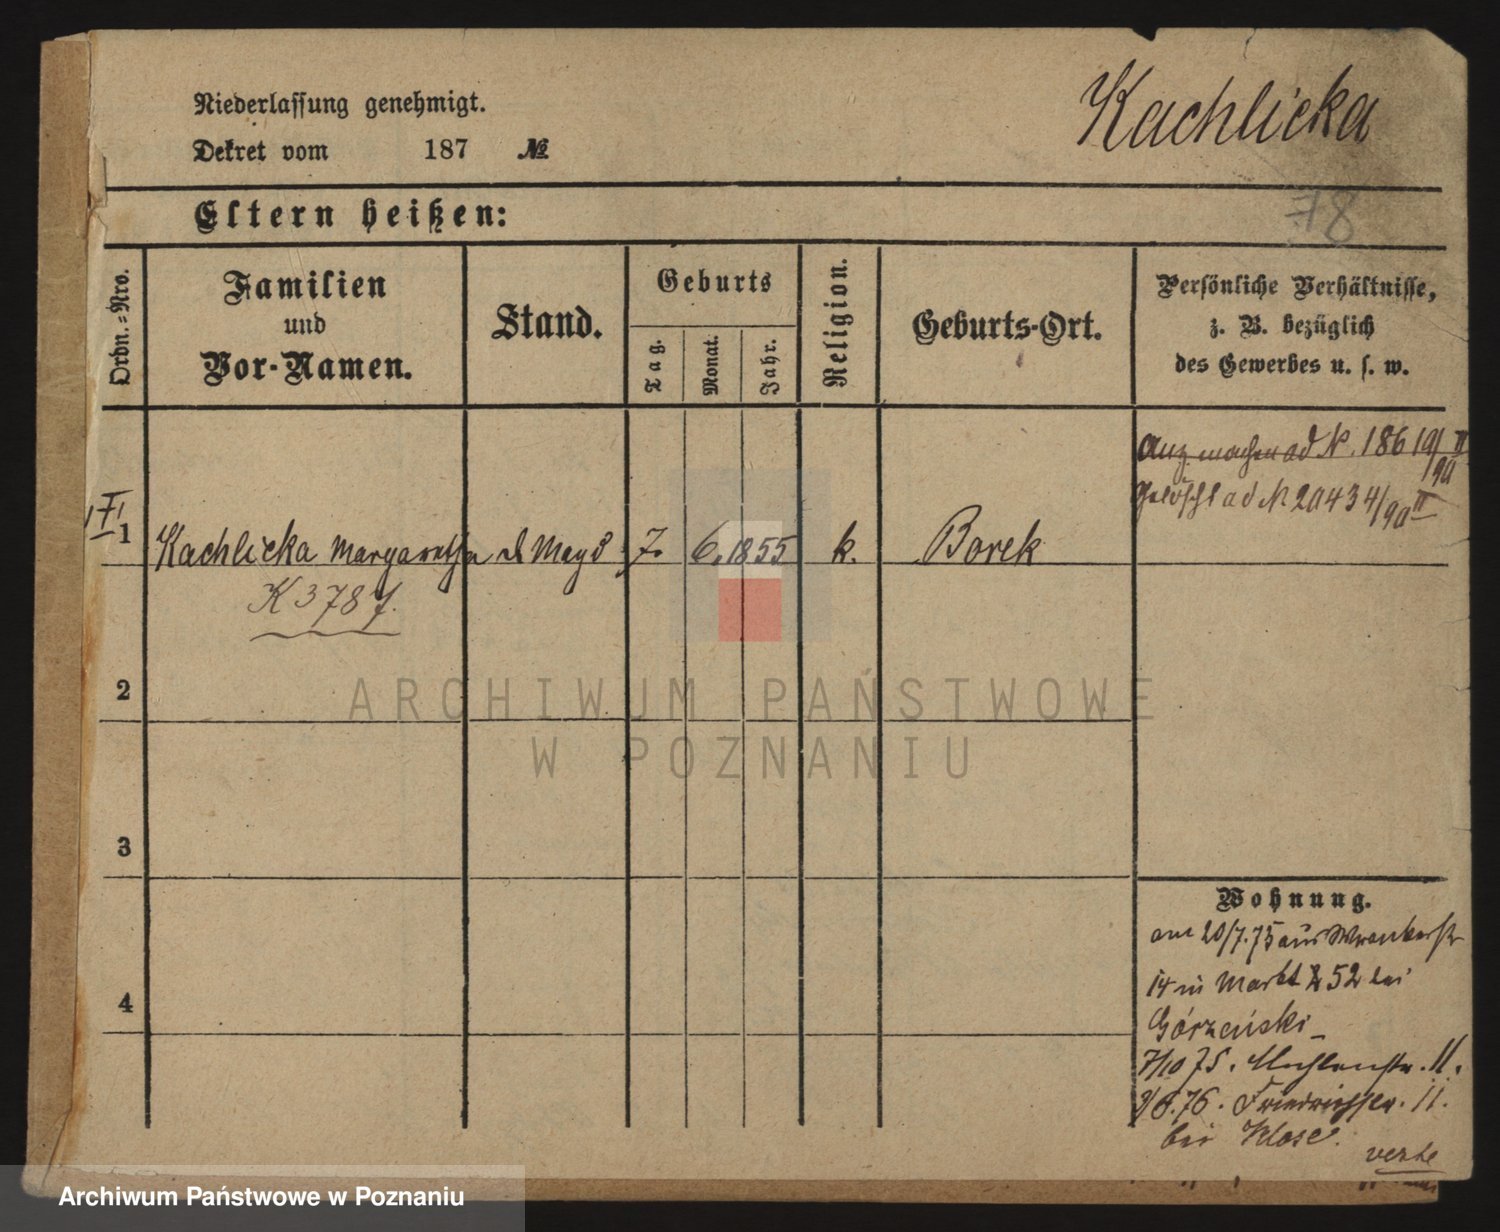 Niederlassung genehmigt.
Dekret vom 187 №
Kachlicka
78
Eltern heißen:
Ordn.-Nro.
Familien
und
Vor-Namen.
Stand.
Geburts
Tag.
Monat.
Jahr.
Religion.
Geburts-Ort.
Persönliche Verhältnisse,
z. B. bezüglich
des Gewerbes u. s. w.
ad N. 186 19/II
90
ad N. 2043 4/II 90
1 Kachlicka Margaretha Magd 7. 6. 1855 k. Borek
K 378 f.
2
3
4
Wohnung.
am 20/7.75 aus Wronkerstr
14 in Markt 52 bei
Górzeński
7/10 75. Mühlenstr. 11.
76. Friedrichstr. 11.
bei Klose.
verte
ARCHIWUM PAŃSTWOWE
W POZNANIU
Archiwum Państwowe w Poznaniu